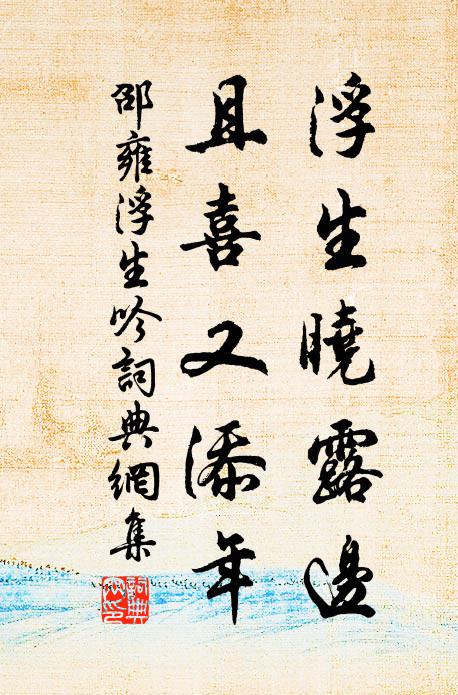 浮生曉露邊
且喜又添年
邵雍浮生吟詞典網集